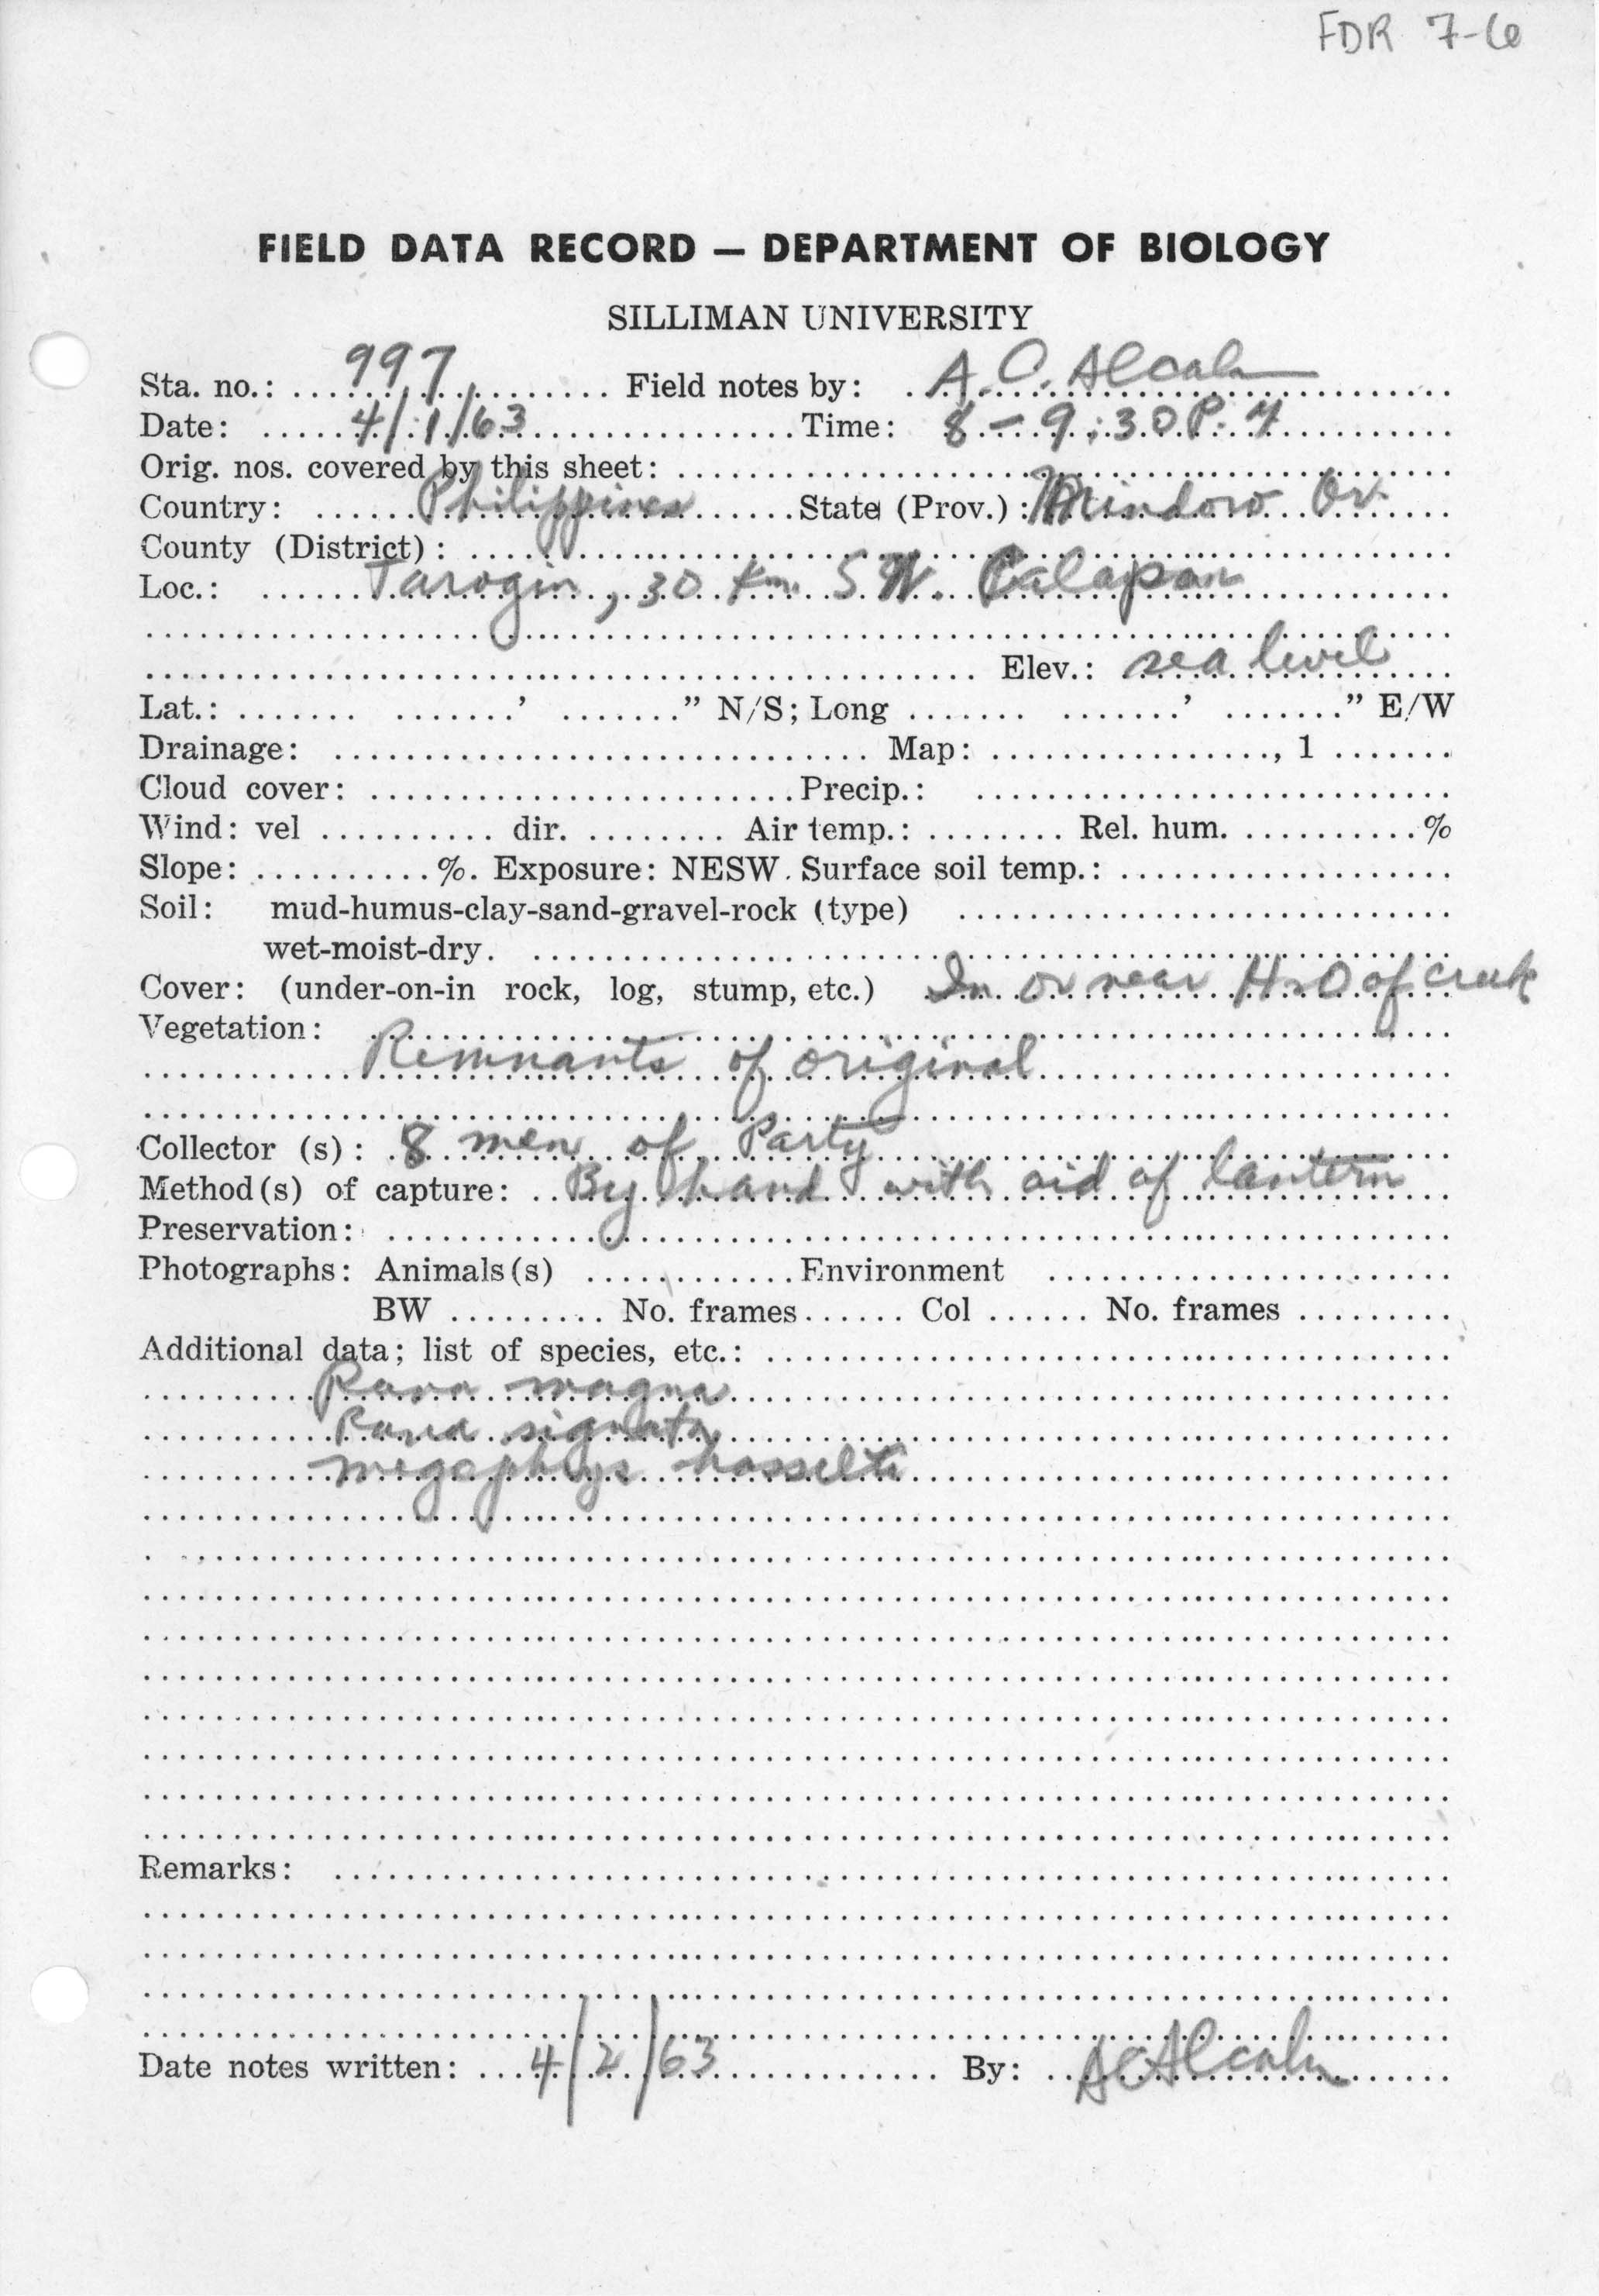 FDR 7-6
FIELD DATA RECORD — DEPARTMENT OF BIOLOGY
SILLIMAN UNIVERSITY
Sta. no.: 997 Field notes by: A. C. Alcala
Date: 4/1/63 Time: 8 – 9:30 P.M
Orig. nos. covered by this sheet:
Country: Philippines State (Prov.): Mindoro Or.
County (District):
Loc.: Tarogin, 30 Km. SW. Calapan
Elev.: sea level
Lat.: ' " N/S; Long ' " E/W
Drainage: Map: , 1
Cloud cover: Precip.:
Wind: vel dir. Air temp.: Rel. hum. %
Slope: %. Exposure: NESW. Surface soil temp.:
Soil: mud-humus-clay-sand-gravel-rock (type)
wet-moist-dry.
Cover: (under-on-in rock, log, stump, etc.) In or near H2O of creek
Vegetation:
Remnants of original
Collector (s): 8 men of Party
Method(s) of capture: By hand with aid of lantern
Preservation:
Photographs: Animals(s) Environment
BW No. frames Col No. frames
Additional data; list of species, etc.:
Rana magna
Rana signata
Megophrys hasselti
Remarks:
Date notes written: 4/2/63 By: A C Alcala